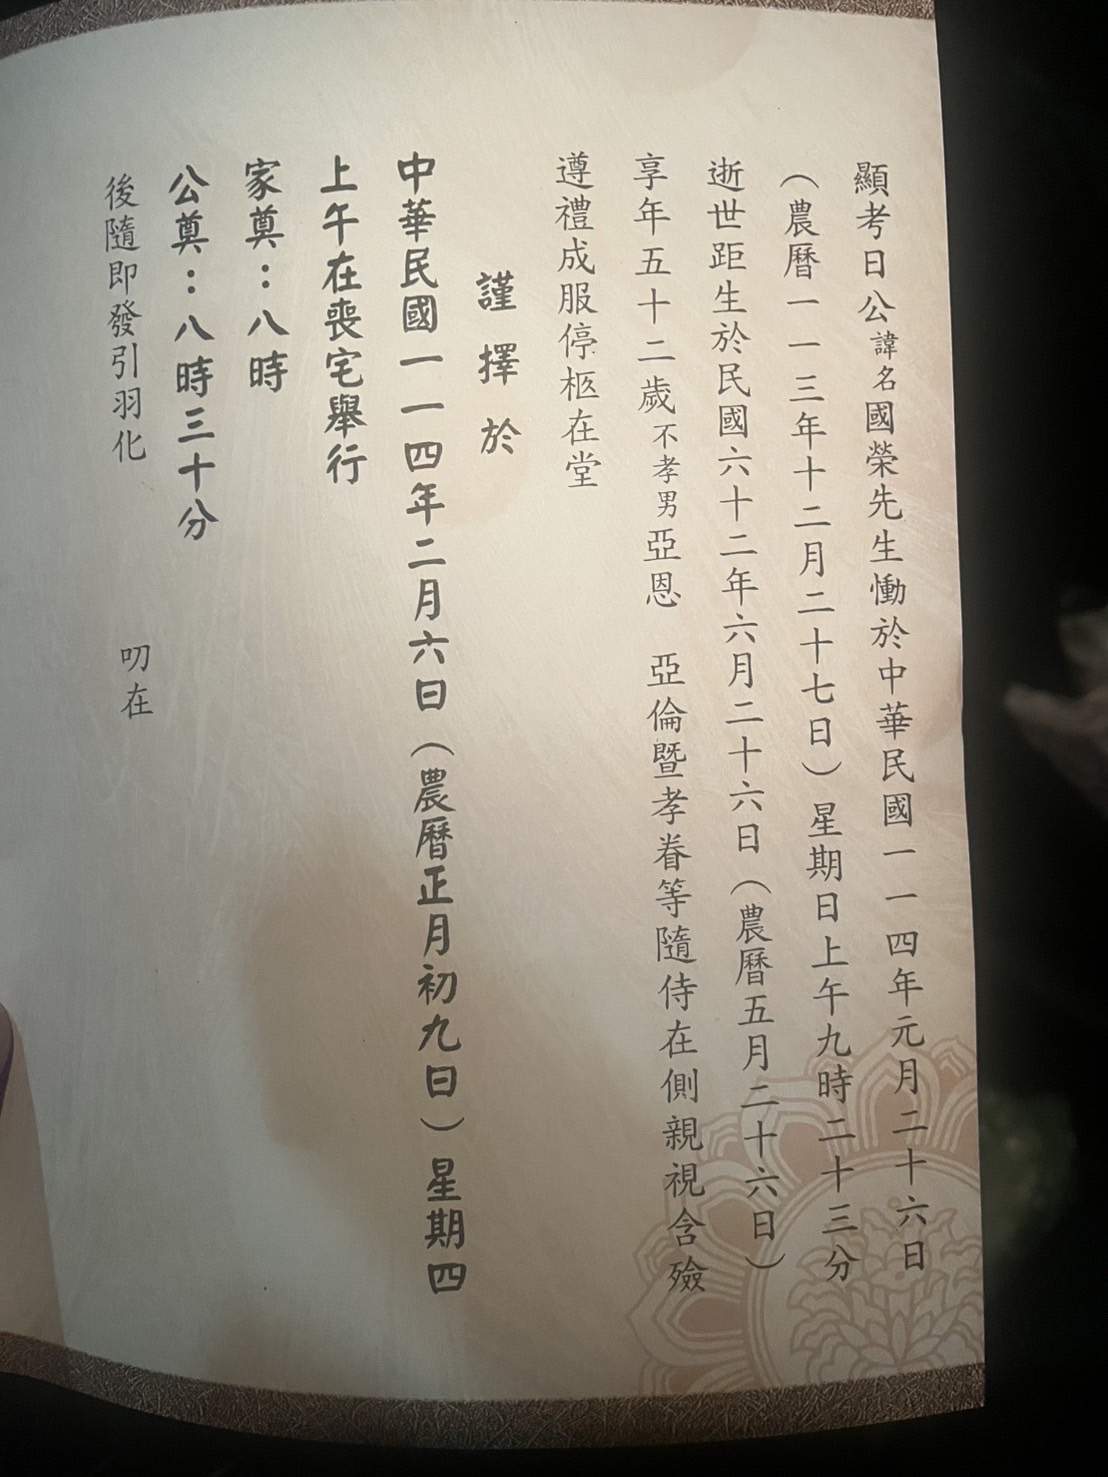 顯考日公諱名國榮先生慟於中華民國一一四年元月二十六日
（農曆一一三年十二月二十七日）星期日上午九時二十三分
逝世距生於民國六十二年六月二十六日（農曆五月二十六日）
享年五十二歲不孝男亞恩　亞倫暨孝眷等隨侍在側親視含殮
遵禮成服停柩在堂
謹擇於
中華民國一一四年二月六日（農曆正月初九日）星期四
上午在喪宅舉行
家奠：八時
公奠：八時三十分
後隨即發引羽化　叨在